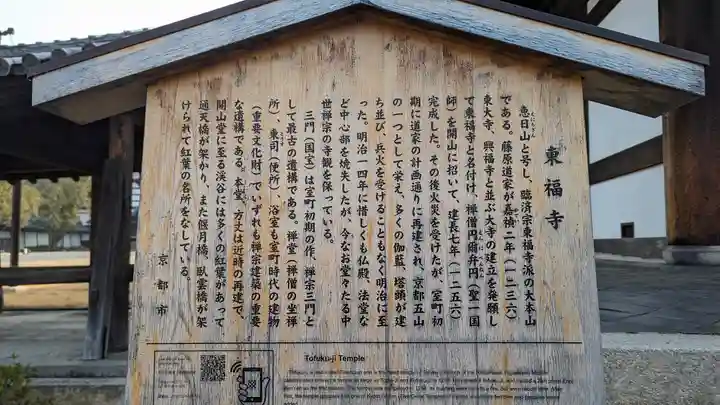 東福寺
恵日山と号し、臨済宗東福寺派の大本山
である。藤原道家が嘉禎二年(一二三六)
東大寺、興福寺と並ぶ大寺の建立を発願し
て東福寺と名付け、禅僧円爾弁円(聖一国
師)を開山に招いて、建長七年(一二五六)
完成した。その後火災を受けたが、室町初
期に道家の計画通りに再建され、京都五山
の一つとして栄え、多くの伽藍、塔頭が建
ち並び、兵火を受けることもなく明治に至
った。明治一四年に惜しくも仏殿、法堂な
ど中心部を焼失したが、今なお堂々たる中
世禅宗の寺観を保っている。
三門(国宝)は室町初期の作、禅宗三門と
して最古の遺構である。禅堂(禅僧の坐禅
所)、東司(便所)、浴室も室町時代の建物
(重要文化財)でいずれも禅宗建築の重要
な遺構である。本堂、方丈は近時の再建で、
開山堂に至る渓谷には多くの紅葉があって
通天橋が架かり、また偃月橋、臥雲橋が架
けられて紅葉の名所をなしている。
京都市
Tofuku-ji Temple